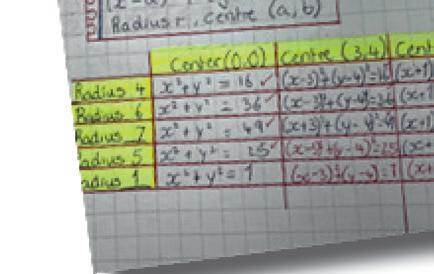 Radius r, Centre (a, b)
Center (0,0) Centre (3,4) Cent
Radius 4 x² + y² = 16 ✓ (x-3)²+(y-4)²=16 (x+1)
Radius 6 x² + y² = 36 ✓ (x-3)²+(y-4)²=36 (x+1
Radius 7 x² + y² = 49 ✓ (x+3)²+(y-4)²=49 (x+1)
adius 5 x² + y² = 25 ✓ (x-3)²+(y-4)²=25 (x+
adius 1 x² + y² = 1 (x-3)²+(y-4)=1 (x+